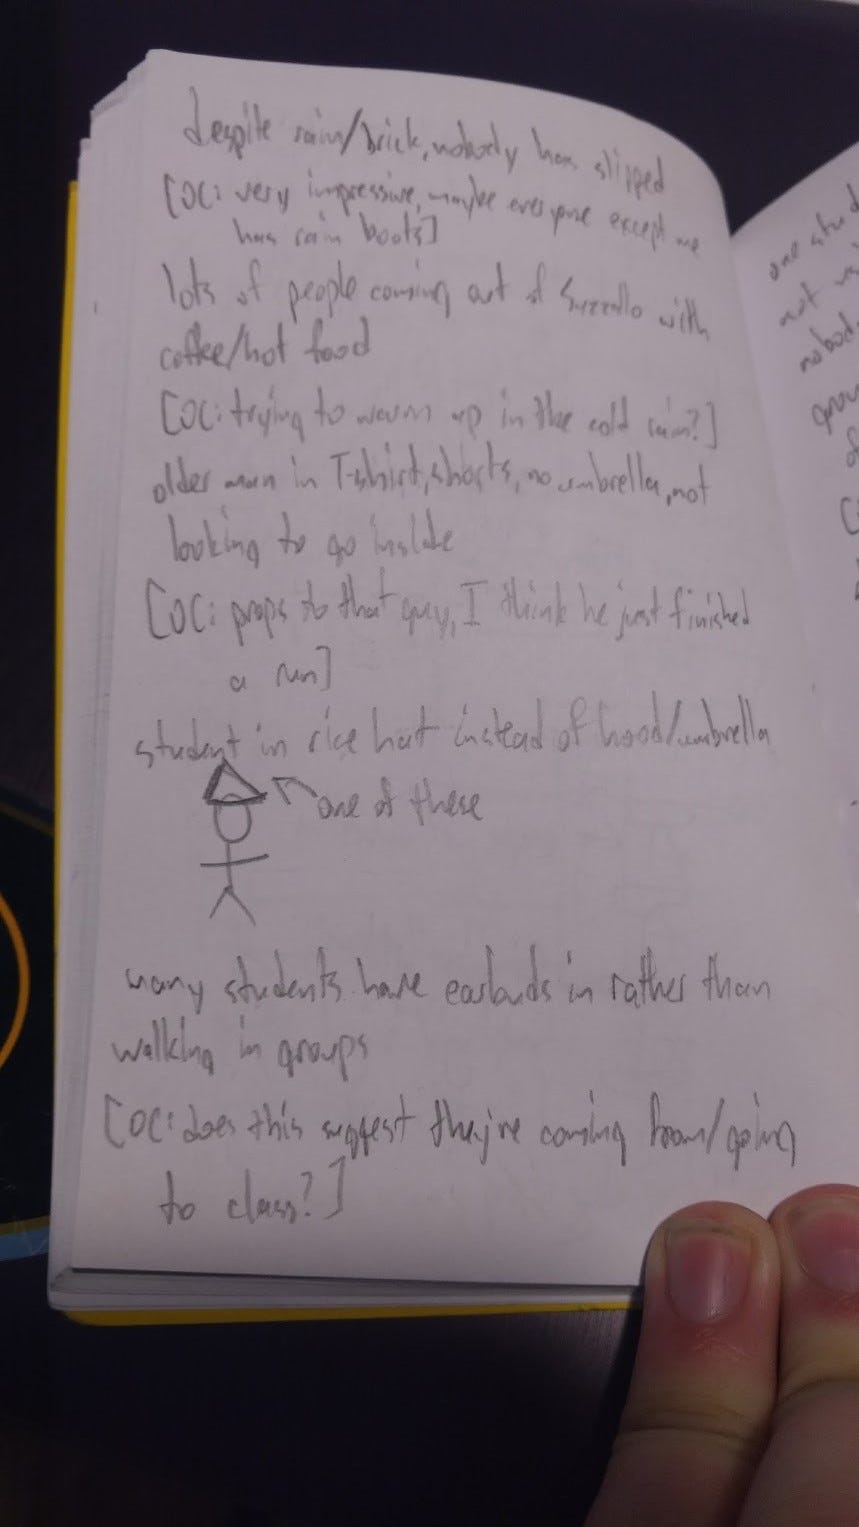 despite rain/brick, nobody has slipped
[OC: very impressive, maybe everyone except me
has rain boots]
lots of people coming out of Suzzallo with
coffee/hot food
[OC: trying to warm up in the cold rain?]
older man in T-shirt, shorts, no umbrella, not
looking to go inside
[OC: props to that guy, I think he just finished
a run]
student in rice hat instead of hood/umbrella
one of these
many students have earbuds in rather than
walking in groups
[OC: does this suggest they're coming from/going
to class?]
one stud
not
nobod